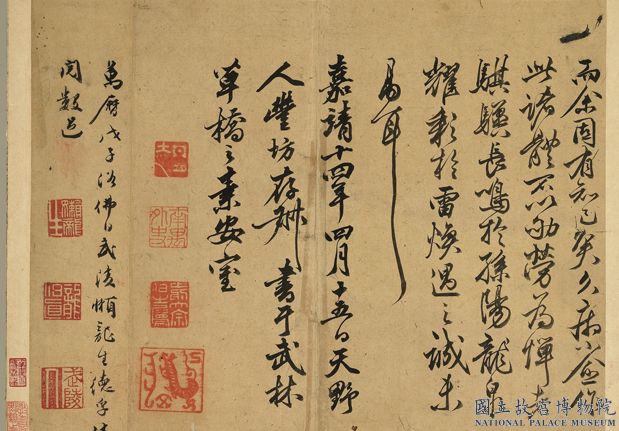 而余固有知己矣久病小愈作
此諸體不以劬勞為憚者
騏驥長鳴於孫陽龍泉
耀彩於雷煥遇之誠未
易耳
嘉靖十四年四月十五日天野
人豐坊存叔書于武林
草橋之素安室
萬曆戊子浴佛日武陵懶龍生德孚
閱數過
武陵
國立故宮博物院
NATIONAL PALACE MUSEUM